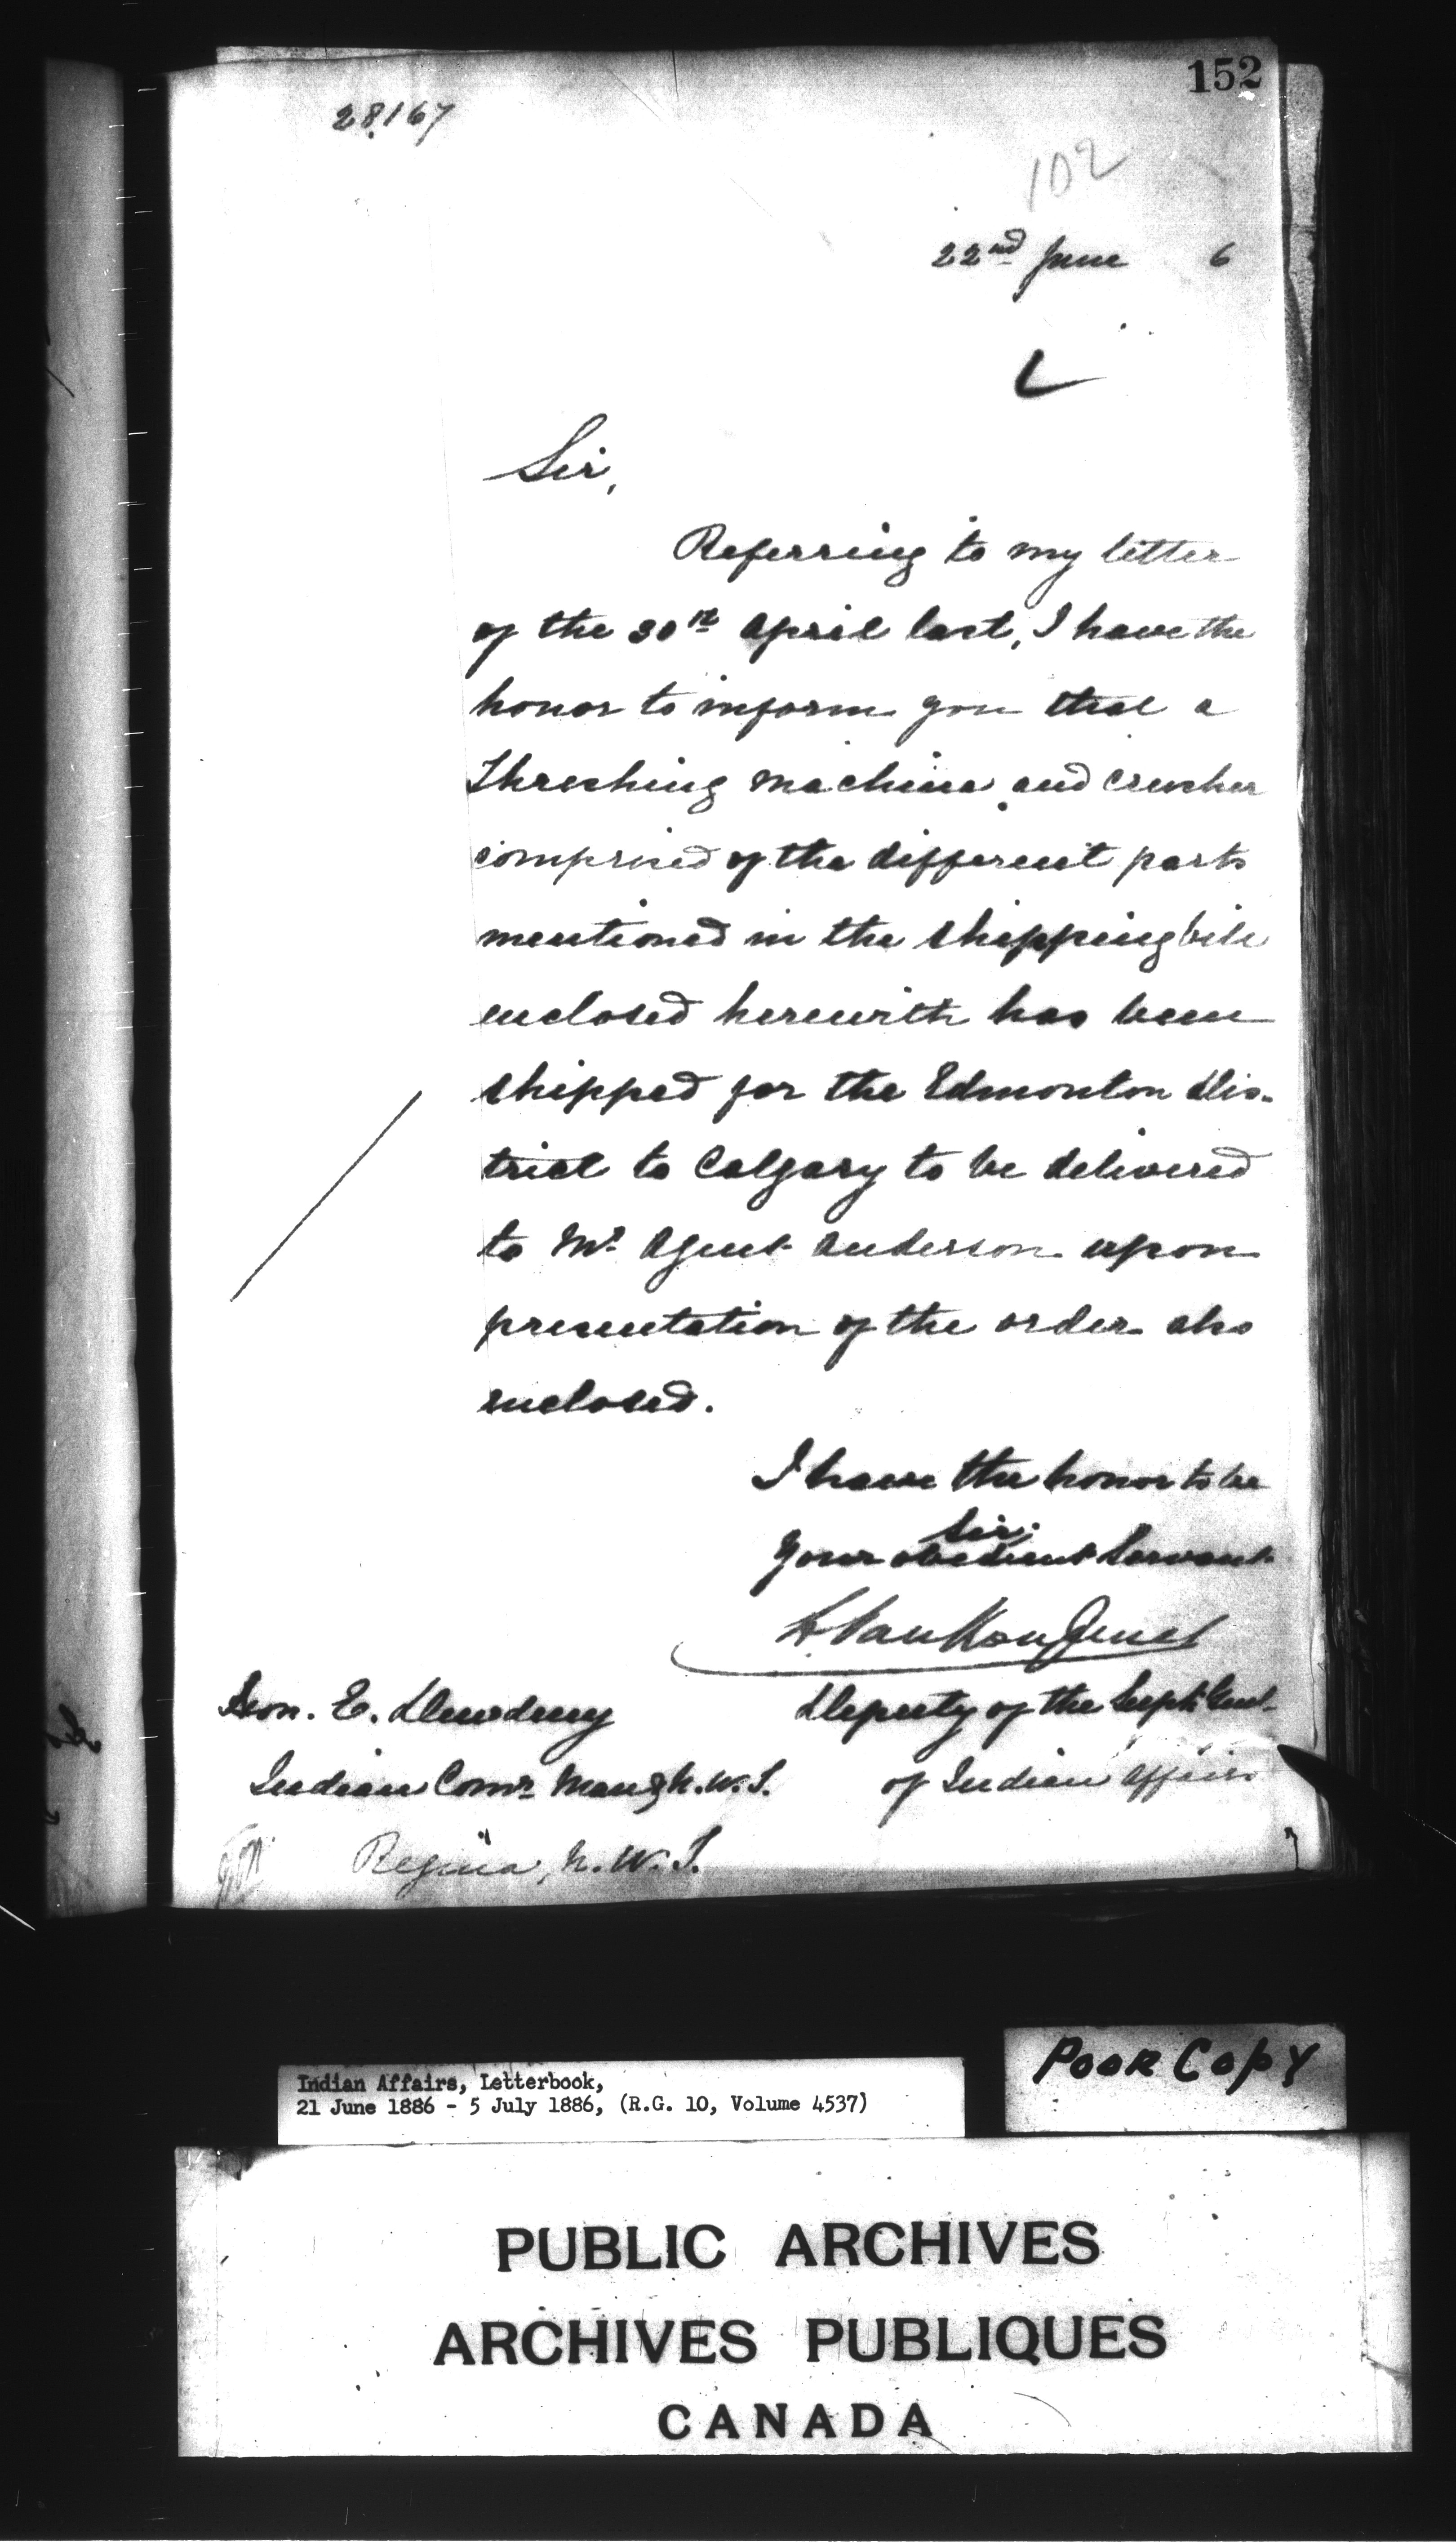 152
28167
102
22nd June 6
Sir,
Referring to my letter
of the 30th April last, I have the
honor to inform you that a
Threshing machine and crusher
comprised of the different parts
mentioned in the shipping bill
enclosed herewith has been
shipped for the Edmonton Dis-
trict to Calgary to be delivered
to Mr. Agent Anderson upon
presentation of the order also
enclosed.
I have the honor to be
Sir,
Your obedient Servant
L. VanKoughnet
Deputy of the Supt. Genl.
of Indian Affairs
Hon. E. Dewdney
Indian Comr. Man & N.W.T.
Regina, N.W.T.
Indian Affairs, Letterbook,
21 June 1886 - 5 July 1886, (R.G. 10, Volume 4537)
POOR COPY
PUBLIC ARCHIVES
ARCHIVES PUBLIQUES
CANADA